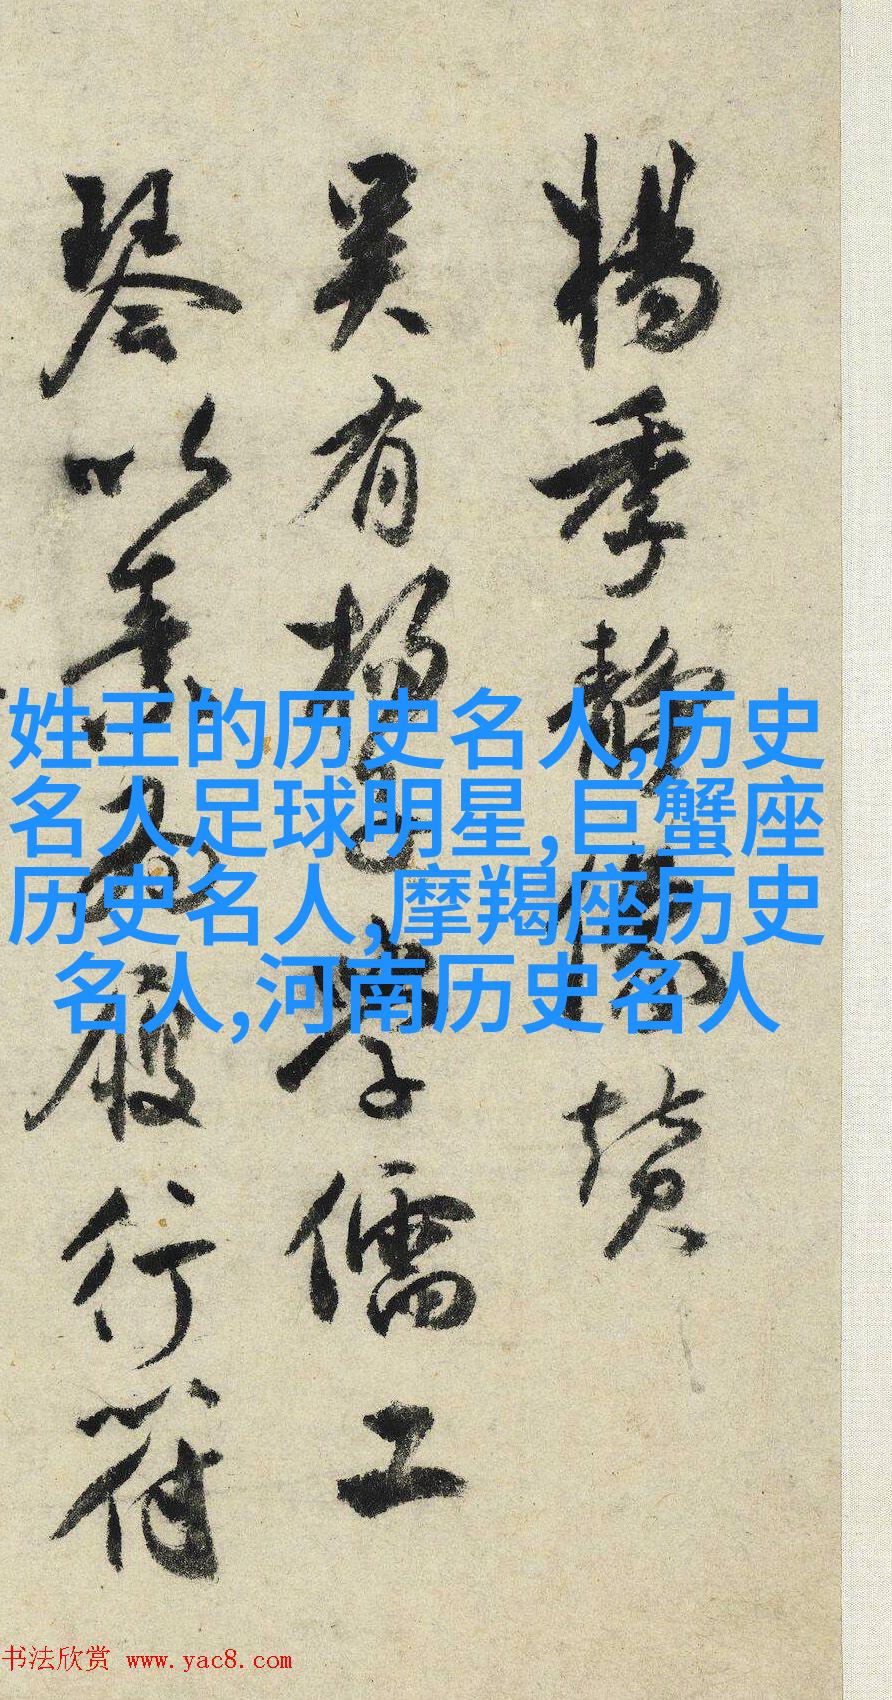 楊季静僊贊
吴有楊氏學儒工
琴以素為履行符
姓王的历史名人,历史
名人足球明星,巨蟹座
历史名人,摩羯座历史
名人,河南历史名人
书法欣赏 www.yac8.com